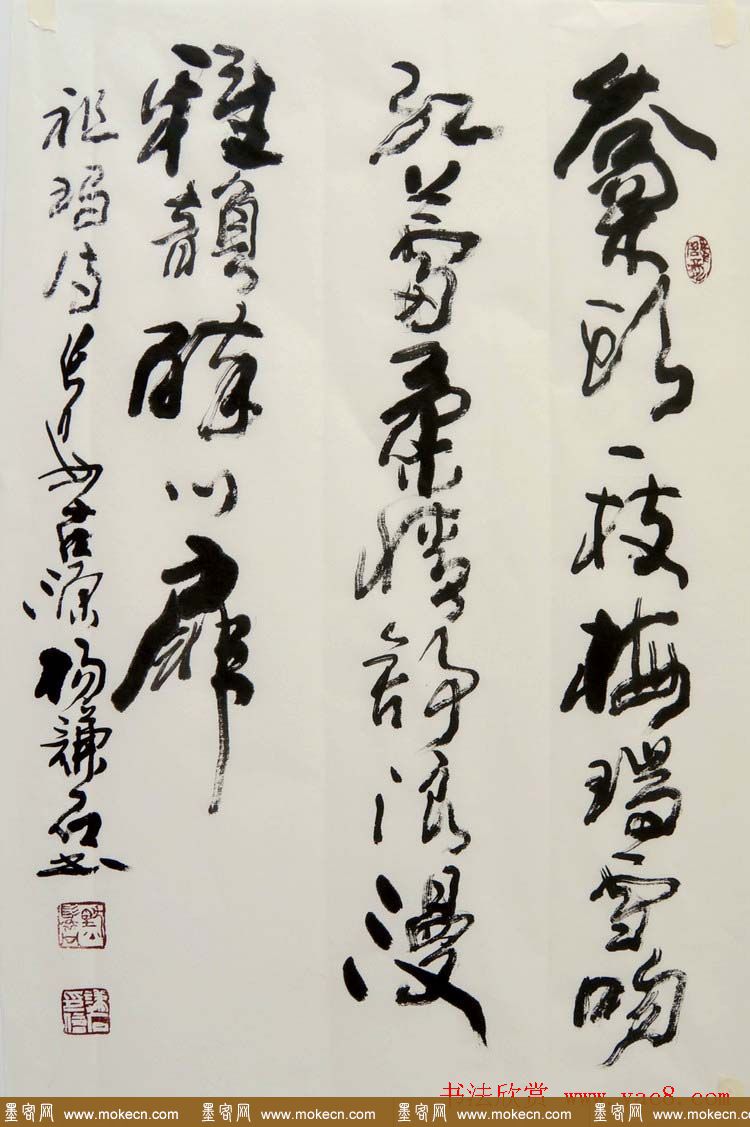 頭一枝梅瑞雪吻
红蕾柔情静浪漫
雅韻醉心扉
祖诗 古源杨谦书
书法欣赏 www.yac8.com
墨客网 www.mokecn.com 墨客网 www.mokecn.com 墨客网 www.mokecn.com 墨客网 www.mokecn.com